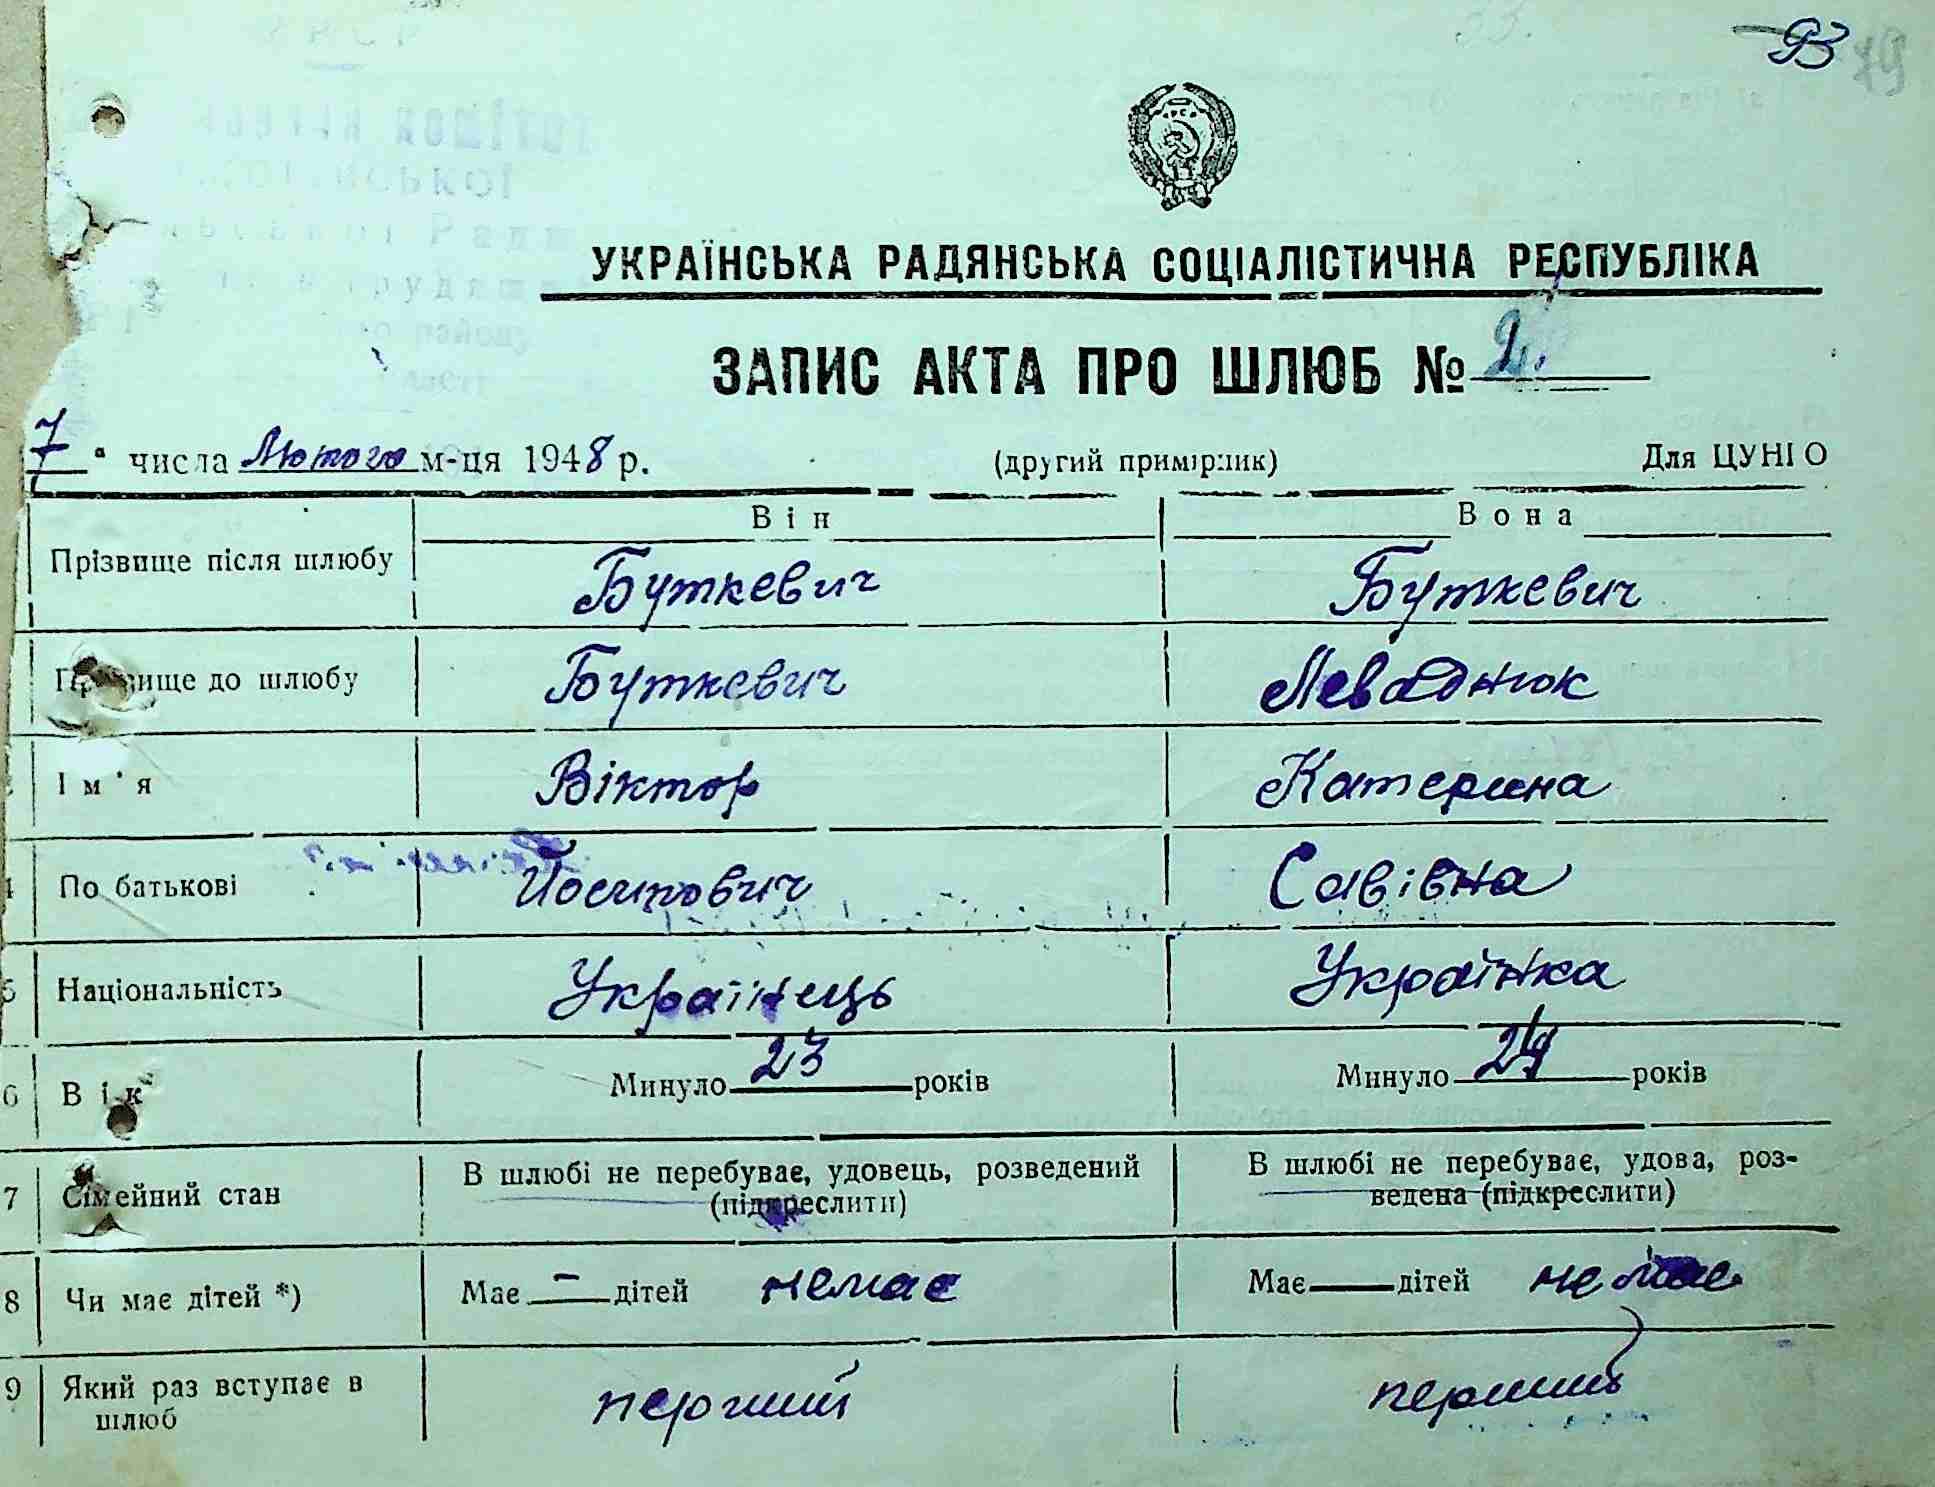 93 79
УКРАЇНСЬКА РАДЯНСЬКА СОЦІАЛІСТИЧНА РЕСПУБЛІКА
ЗАПИС АКТА ПРО ШЛЮБ № 2.
7 " числа Лютого м-ця 1948 р. (другий примірник) Для ЦУНГО
Він Вона
Прізвище після шлюбу Буткевич Буткевич
Прізвище до шлюбу Буткевич Леваднюк
Ім'я Віктор Катерина
4 По батькові Йосипович Савівна
5 Національність Українець Українка
6 Вік Минуло 23 років Минуло 24 років
7 Сімейний стан В шлюбі не перебуває, удовець, розведений В шлюбі не перебуває, удова, роз-
(підкреслити) ведена (підкреслити)
8 Чи має дітей *) Має — дітей немає Має дітей немає
9 Який раз вступає в перший перший
шлюб